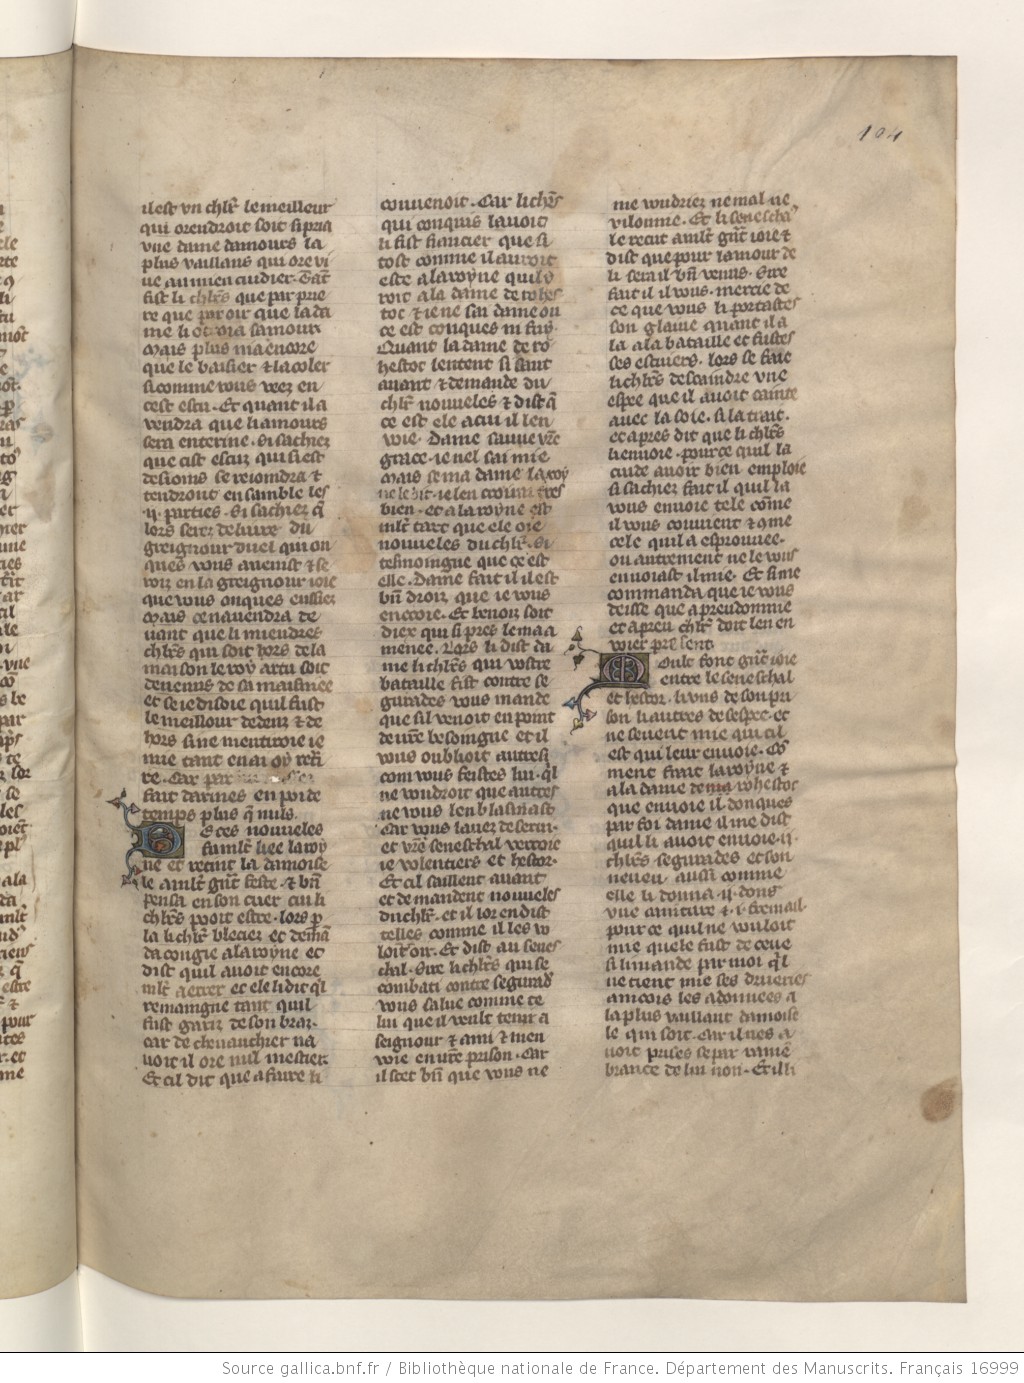 104
il est vn chlr̄ le meilleur
qui orendroit soit si pria
vne dame damours la
plus vaillans qui ore vi
ue au mien cuidier. Tāt
fist li chlr̄s que par prie
re que par oir que la da
me li ot̄ria samour
mais plus ni a encore
que le baisier ⁊ lacoler
si comme vous veez en
cest escu. Et quant il a
vendra que li amours
sera enterine. Si sachiez
que cist escuz qui si est
desioins se reioindra ⁊
tendront ensamble les
.ij. parties. Si sachiez q̄
lors serez deliure du
greignour duel qui on
ques vous auenist ⁊ se
roiz en la greignour ioie
que vous onques eussiez
mais ce nauendra de
uant que li mieudres
chlr̄s qui soit hors de la
maison le roy artu soit
deuenus de sa maisnee
et se ie disdie quil fust
le meillour dedenz ⁊ de
hors si ne mentiroie ie
mie tant en ai oy retr̄
re. Car par
fait darmes en po de
temps plus q̄ nuls.
De ces nouueles
fu ml̄t liee la roy
ne et retint la damoise
le a ml̄t gn̄t feste. ⁊ bn̄
pensa en son cuer cui li
chlr̄s pooit estre. lors p̄
la li chlr̄ bleciez et demā
da congie a la royne et
dist quil auoit encore
ml̄t a errer et ele li dit ql̄
remaingne tant quil
fust gariz de son braz.
car de cheuauchier na
uoit il ore nul mestier.
Et cil dit que a faire li
couuenoit. Car li chlr̄s
qui conquis lauoit
li fist fiancier que si
tost comme il auroit
este a la royne quil y
roit a la dame de rohes
toc ⁊ ie ne sai dame ou
ce est conques ni fuy.
Quant la dame de ro
hestoc lentent si saut
auant ⁊ demande du
chlr̄ nouueles ⁊ dist q̄
ce est ele a cui il len
uoie. dame sauue vr̄e
grace. ie nel sai mie
mais se ma dame la roy
ne le dit. ie len crourai tres
bien. et a la royne est
ml̄t tart que ele oie
nouueles du chlr̄. Si
tesmoingne que ce est
elle. Dame fait il il est
bn̄ droiz que ie vous
encore. Et benoiz soit
diex qui si pres le ma a
menee. Lors li dist da
me li chlr̄s qui vostre
bataille fist contre se
gurades vous mande
que sil venoit en point
de vr̄e besoingne et il
vous oublioit autresi
com vous feistes lui. ql̄
ne voudroit que autres
ne vous len blasmast
Car vous lauez deserui.
et vr̄e seneschal verroie
ie volentiers et hestor.
Et cil saillent auant
et demandent nouueles
du chlr̄. et il lor en dist
telles comme il les vo
loit oir. Et dist au senes
chal. Sire li chlr̄s qui se
combati contre segurad̄
vous salue comme ce
lui que il veult tenir a
seignour ⁊ ami ⁊ men
uoie en vr̄e prison. Car
il scet bn̄ que vous ne
me voudriez ne mal ne
vilonnie. Et li senescha
le recut a ml̄t gn̄t ioie ⁊
dist que pour lamour de
li sera il bn̄ venus. Sire
fait il il vous mercie de
ce que vous li portastes
son glaiue quant il a
la a la bataille et fustes
ses escuiers. lors se faut
li chlr̄s desceindre vne
espee que il auoit cainte
auec la soie. si la trait.
et apres dit que li chlr̄s
li enuoie. pour ce quil la
cuide auoir bien emploie
si sachiez fait il quil la
vous enuoie tele com̄e
il vous couuient ⁊ 9me
cele quil a esprouuee.
ou autrement ne le vous
enuoiast il mie. Et si me
commanda que ie vous
deisse que a preudomme
et a preu chlr̄ doit len en
uoier pre sent.
Moult font gn̄t ioie
entre le seneschal
et hestor. li vns de son pri
son li autres de sespee. et
ne seuent mie qui cil
est qui leur enuoie. Cō
ment frait la royne ⁊
a la dame de rohestoc
que enuoie il donques
par foi dame il me dist
quil li auoit enuoie .ij.
chlr̄s segurades et son
neueu. aussi comme
elle li donna .ij. dons
vne ceinture ⁊ .i. fremail.
pour ce quil ne vouloit
mie quele fust de ceue
si li mande par moi ql̄
ne tient mie ses drueries
aincois les a donnees a
la plus vaillant damoise
le qui soit. Car il nes a
uoit prises se par ramē
brance de lui non. Et il li
Source gallica.bnf.fr / Bibliothèque nationale de France. Département des Manuscrits. Français 16999